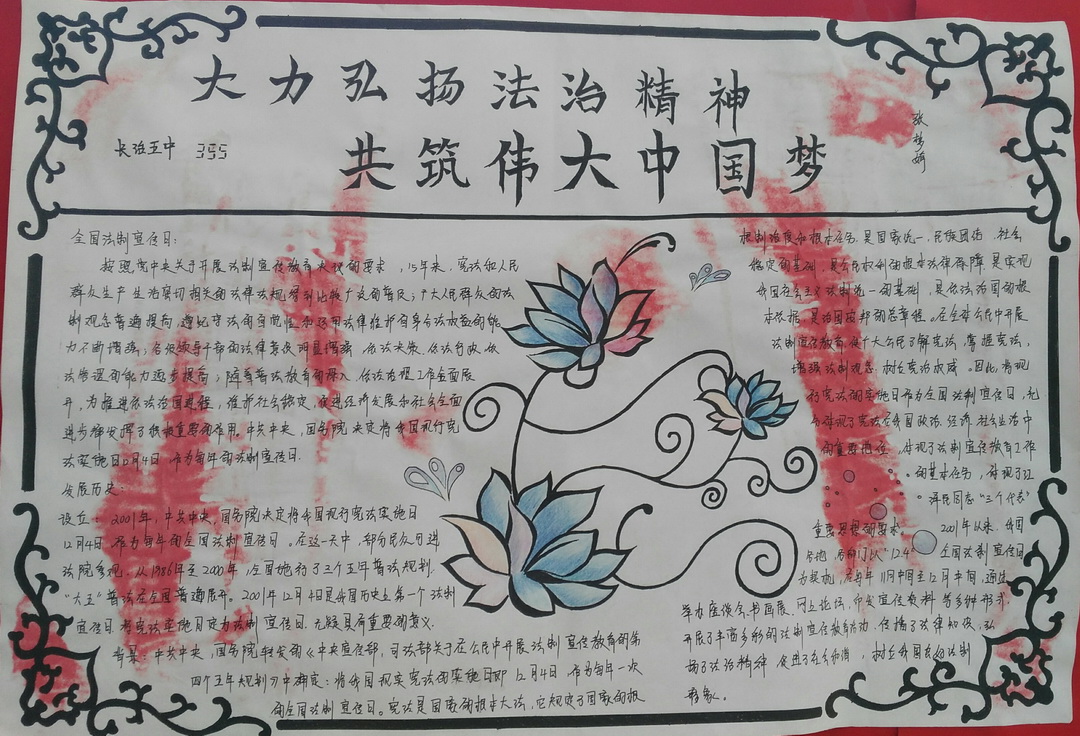 大力弘扬法治精神
共筑伟大中国梦
长治五中 395
张梦娟
全国法制宣传日：
按照党中央关于开展法制宣传教育决议的要求，15年来，宪法和人民
群众生产生活密切相关的法律法规得到比较广泛的普及；广大人民群众的法
制观念普遍提高，遵纪守法的自觉性和运用法律维护自身合法权益的能
力不断增强；各级领导干部的法律素质明显增强，依法决策、依法行政、依
法管理的能力逐步提高；随着普法教育的深入，依法治理工作全面展
开，为推进依法治国进程，维护社会稳定，促进经济发展和社会全面
进步都发挥了积极重要的作用。中共中央，国务院决定将我国现行宪
法实施日12月4日，作为每年的法制宣传日.
发展历史：
设立：2001年，中共中央，国务院决定将我国现行宪法实施日
12月4日，作为每年的全国法制宣传日。在这一天中，部分民众可进
法院参观。从1986年至2000年，全国施行了三个五年普法规划.
"大五"普法在全国普遍展开。2001年12月4日是我国历史上第一个法制
宣传日，将宪法实施日定为法制宣传日，无疑具有重要的意义.
背景：中共中央，国务院转发的《中央宣传部，司法部关于在公民中开展法制宣传教育的第
四个五年规划》中确定：将我国现实宪法的实施日即12月4日，作为每年一次
的全国法制宣传日。宪法是国家的根本大法，它规定了国家的根
根制治度和根本任务，是国家统一、民族团结、社会
稳定的基础，是公民权利的根本法律保障，是实现
我国社会主义法制统一的基础，是依法治国的根
本依据，是治国安邦的总章程。在全体公民中开展
法制宣传教育，使广大公民了解宪法，掌握宪法，
增强法制观念，树立宪法权威。因此，将现
行宪法的实施日作为全国法制宣传日，充
分体现了宪法在我国政治、经济、社会生活中
的重要地位，体现了法制宣传教育工作
的基本任务，体现了江
泽民同志"三个代表"
重要思想的要求。
2001年以来，我国
各地，各部门以"12.4"全国法制宣传日
为契机，在每年11月中旬至12月中旬，通过
举办座谈会、书画展、网上论坛，印发宣传资料等多种形式，
开展了丰富多彩的法制宣传教育活动，传播了法律知识，弘
扬了法治精神，促进了社会和谐，树立我国良好法制
形象。